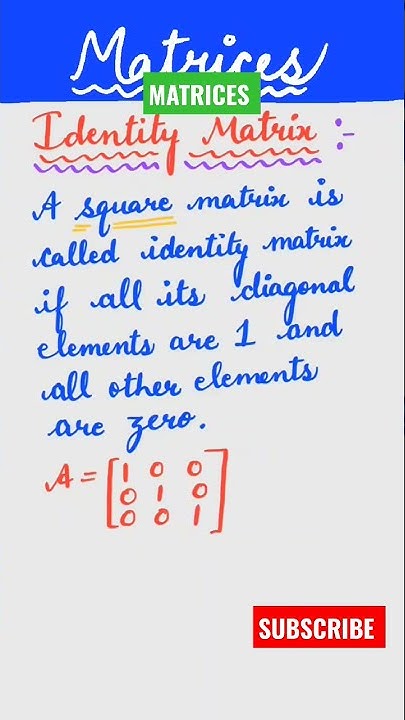 Matrices
MATRICES
Identity Matrix :-
A square matrix is
called identity matrix
if all its diagonal
elements are 1 and
all other elements
are zero.
A = [1 0 0
0 1 0
0 0 1]
SUBSCRIBE